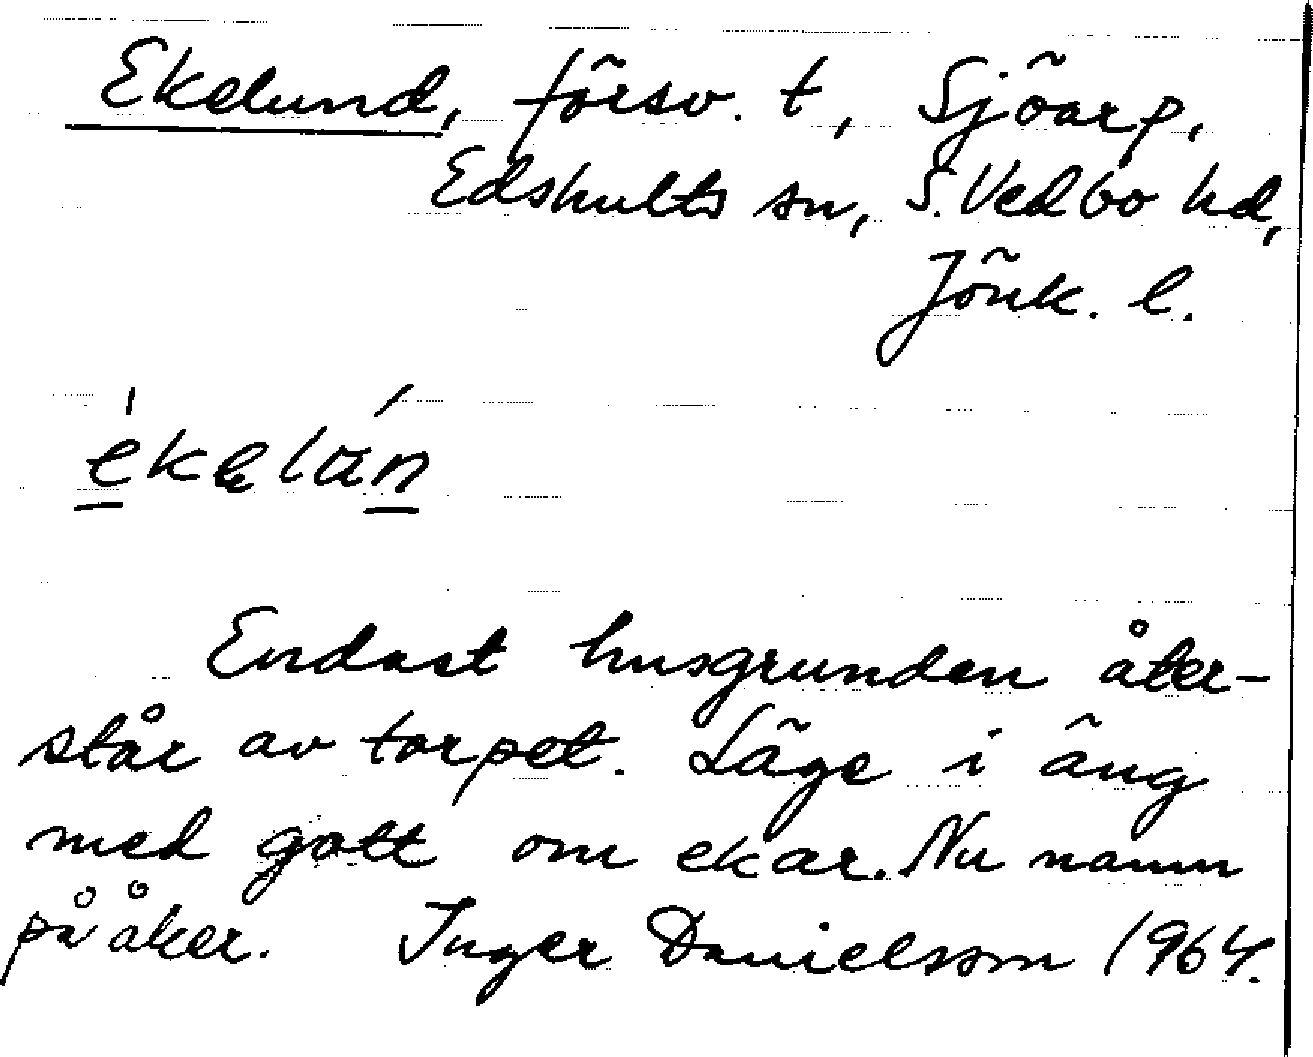 Ekelund, försv. t, Sjöarp,
Edshults sn, S. Vedbo hd,
Jönk. l.
Endast husgrunden åter-
står av torpet. Läge i äng
med gott om ekar. Nu namn
på åker. Inger Danielsson 1964.